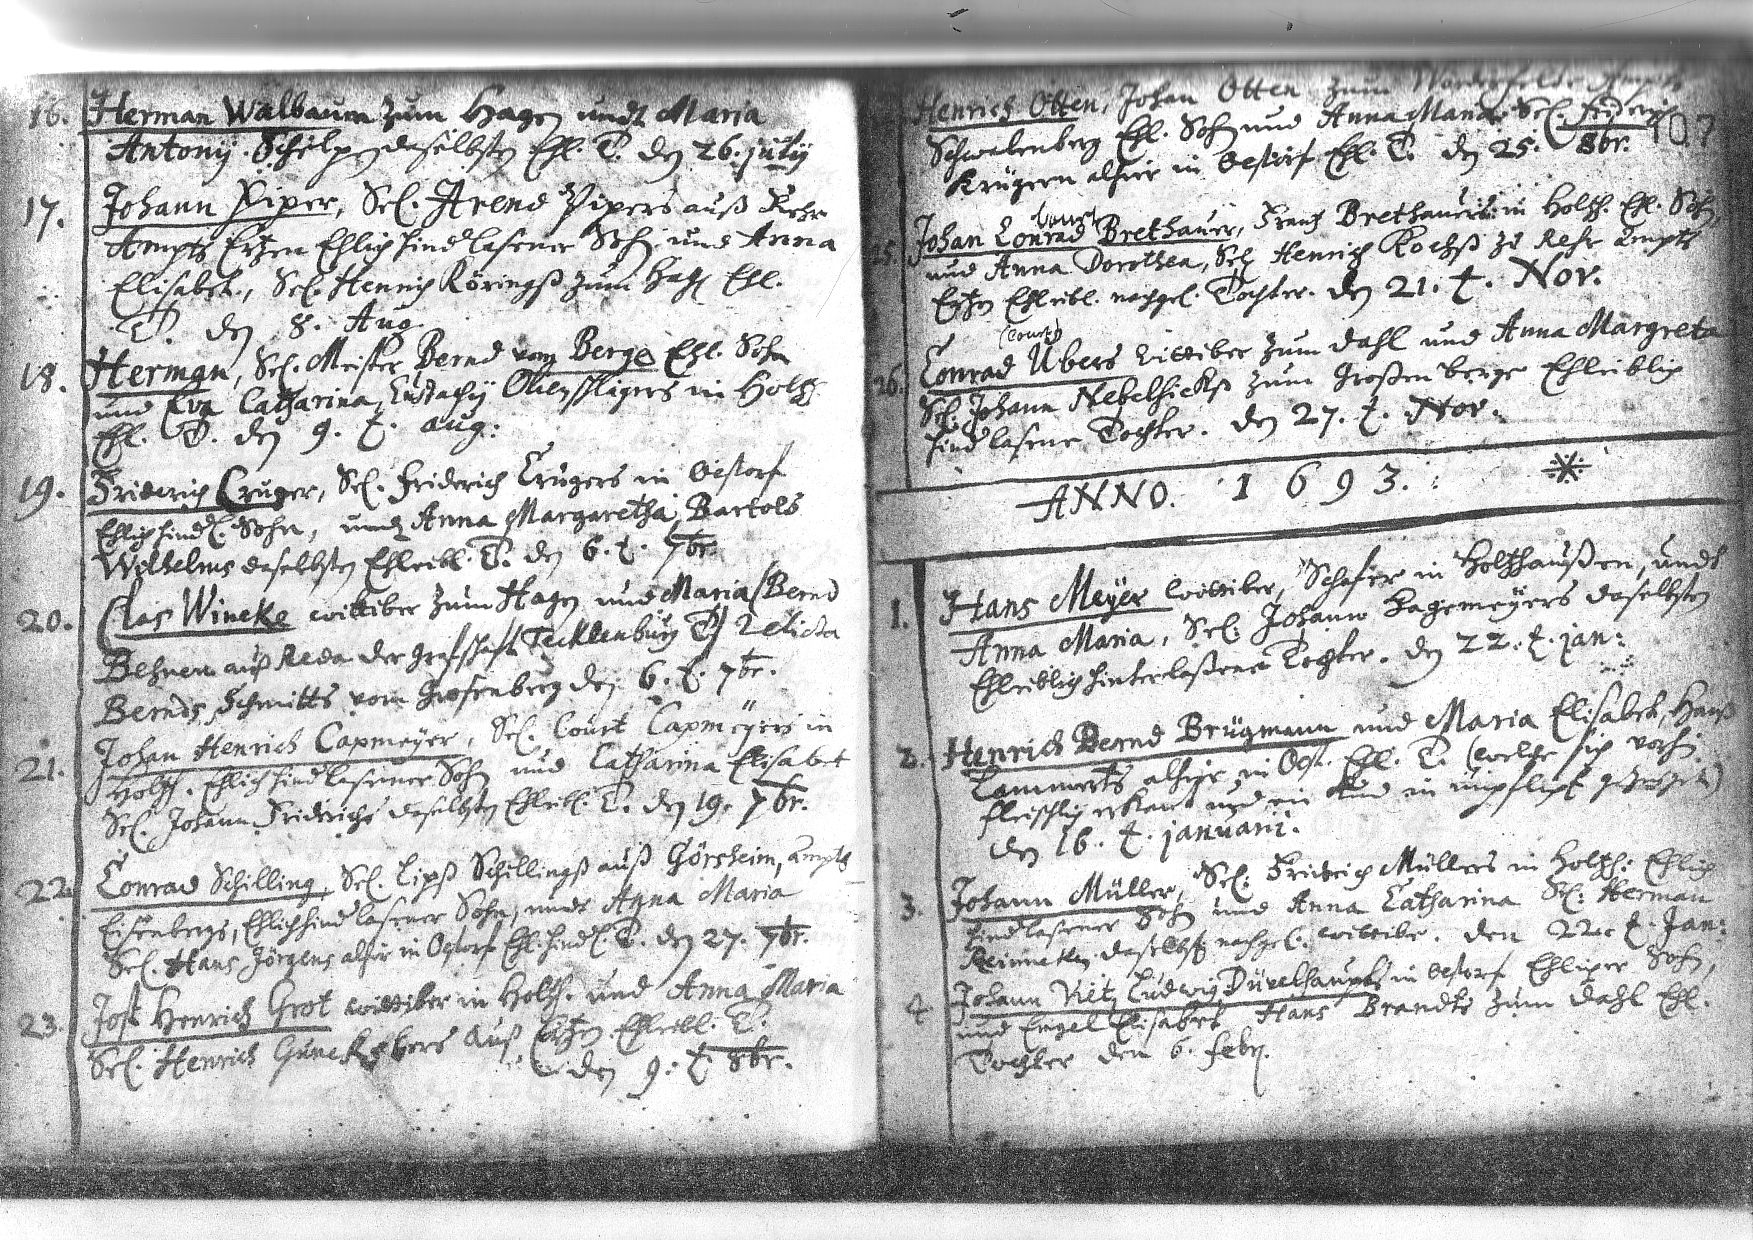 16. Herman Walbaum zum Hagen undt Maria
Antonij Schelpen daselbsten Ehl. T. den 26. julij
17. Johann Piper, Sel. Arend Pipers auß Rehr
Ampts Erzen Ehlich hind lasener Sohn und Anna
Elisabet, Sel. Henrich Körings zum Hagen Ehl.
T. den 8. Aug.
18. Herman, Sel. Meister Bernd vom Berge Ehl. Sohn
und Eva Catharina, Eustachij in Holtzh.
Ehl. T. den 9. t. aug:
19. Friderich Cruger, Sel. Friderich Crugers in Oestorf
Ehlich hindl. Sohn, und Anna Margaretha, Bartols
Wilhelms daselbsten Ehleibl. T. den 6. t. 7br.
20. Clas Wineke wittiber zum Hagen und Maria (Bernd
Behnen auß Reda der Grafschaft Tecklenburg T.) relicta
Bernds Schmitts vom Grosenberg den 6. t. 7br.
21. Johan Henrich Capmeyer, Sel. Court Capmeyers in
Holtzh. Ehlich hind lasener Sohn und Catharina Elisabet
Sel. Johann Friderichs daselbsten Ehleibl. T. den 19. 7br.
22. Conrad Schilling, Sel. Lips Schillings auß Görsheim, ampts
Eisenbergs, Ehlich hind lasener Sohn, undt Anna Maria
Sel. Hans Jörgens alhir in Ostorf Ehl. hindl. T. den 27. 7br.
23. Jost Henrich Grot wittiber in Holtzh. und Anna Maria
Sel. Henrich auß Erzen Ehleibl. T.
den 9. t. 8br.
Henrich Otten, Johan Otten zum Ampts
Schwalenberg Ehl. Sohn und Anna Maria Sel. Friderich
Krügern alhier in Oestorf Ehl. T. den 25. 8br. 107
Court
25. Johan Conrad Brethauer, Frantz Brethauers in Holtzh. Ehl. Sohn,
und Anna Dorothea, Sel. Henrich Kochß zu Rehr Ampts
Erzen Ehleibl. nachgel. Tochter. den 21. t. Nov.
(Court)
26. Conrad Übers wittiber zum Dahl und Anna Margreta
Sel. Johann Nebelsiekß zum großen berge Ehleiblich
hind lasene Tochter. den 27. t. Nov.
ANNO. 1693.
1. Hans Meyer wittiber, Schäfer in Holtzhaußen, undt
Anna Maria, Sel. Johann Hagemeyers daselbsten
Ehleiblich hinterlaßene Tochter. den 22. t. jan:
2. Henrich Bernd Brügmann und Maria Elisabet, Hanß
Lammerts alhier in Oest. Ehl. T. (welche sich vorhin
fleischlich erkant und ein kind in unpflicht gezeuget)
den 16. t. januarii.
3. Johann Müller, Sel. Friderich Müllers in Holtzh. Ehlich
hindlasener Sohn und Anna Catharina Sel. Herman
daselbst nachgel. wittibe. den 22. t. Jan:
4. Johann Vietz Ludwig Düvelshaupts in Oestorf Ehliger Sohn,
und Engel Elisabet Hans Brandts zum Dahl Ehl.
Tochter den 6. febr.